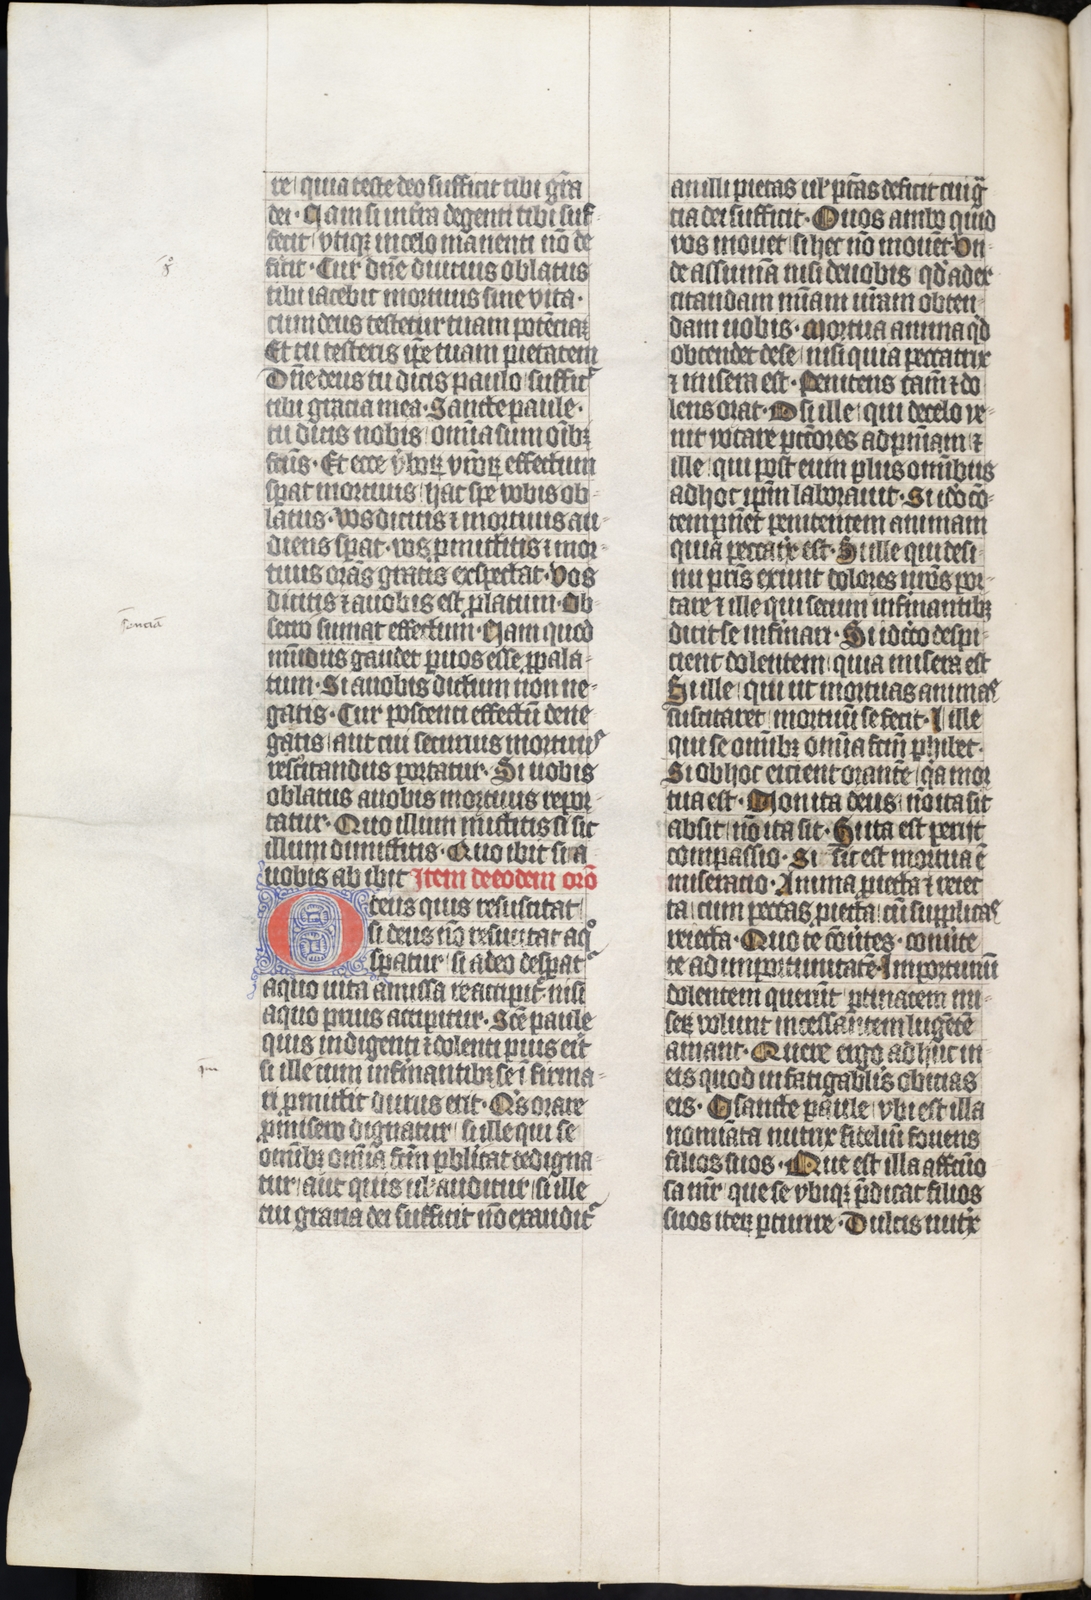 te quia teste deo sufficit tibi gr̄a
dei · Nam si in t̄ra degenti tibi suf-
fecit vtiqꝫ in celo manenti nō de
ficit · Cur dn̄e diutius oblatus
tibi iacebit mortuus sine vita ·
cum deus testetur tuam potēciaꝫ
Et tu testeris xp̄e tuam pietatem
Dn̄e deus tu dicis paulo sufficit
tibi gracia mea · Sancte paule ·
tu dicis nobis om̄ia sum oībꝫ
fc̄us · Et ecce effectum
sp̄at mortuus hac spe vobis ob-
latus · Vos dicitis ⁊ mortuus au-
diens sp̄at · vos ꝓmittitis ⁊ mor-
tuus orās gratis exspectat · Vos
dicitis ⁊ a uobis est plātum · Ob-
secro sumat effectum · Nam quod
mūdus gaudet p̄uos esse ꝓpala-
tum · Si a uobis dictum non ne-
gatis · Cur poscenti effectū dene
gatis aut cui securius mortuus
rescitandus portatur · Si uobis
oblatus a uobis mortuus repor-
tatur · Quo illum mittitis si sic
illum dimittitis · Quo ibit si a
uobis abibit Item de eodem orō
O deus quis resuscitat
si deus nō resuscitat a q°
sp̄atur si a deo desp̄at᷑
a quo uita amissa reaccipit᷑ nisi
a quo prius accipitur · Sc̄e paule
quis indigenti ⁊ dolenti pius erit
si ille cum infirmantibꝫ se īfirma-
ri ꝑmittit durus erit · Q̄s orare
ꝓ misero dignatur si ille qui se
omībꝫ om̄ia fcm̄ publicat dedigna-
tur aut quis ul᷑ auditur si ille
cui gracia dei sufficit nō exaudit᷑
an illi pietas ul᷑ p̄tas deficit cui gr̄
tia dei sufficit · O uos ambo quid
vos mouet si hec nō mouēt · Vn-
de assumā nisi de uobis qd̄ ad ex
citandam mīam ur̄am obten-
dam uobis · Mortua anima qd̄
obtendet de se nisi quia peccatrix
⁊ misera est · Penitens tam̄ ⁊ do
lens orat · O si ille qui de celo ve-
nit vocare pcc̄ores ad pn̄iam ⁊
ille qui post eum plus omībus
ad hoc ip̄m laborauit · Si idō cō-
tempn̄et penitentem animam
quia peccatrix est · Si ille qui desi-
nu pr̄is exiuit dolores nr̄os por-
tare ⁊ ille qui secum infirmantibꝫ
dicit se infirmari · Si idc̄o despi-
cient dolentem quia misera est
Si ille qui ut mortuas animas
suscitaret mortuū se fecit · ille
qui se omībꝫ om̄ia fcm̄ phibet ·
Si ob hoc eicient orantē qa mor
tua est · Non ita deus nō ita sit
absit nō ita sit · Si ita est periit
compassio · Si sic est mortua ē
miseratio · Anima piecta ⁊ reiec
ta cum peccas piecta cū supplicas
reiecta · Quo te cōūtes · conūte
te ad importunitatē · Importunū
dolentem querūt ptinacem mi-
seꝝ volunt incessantem lugētē
amant · Quere ergo adhuc in
eis quod infatigabilis obicias
eis · O sancte paule vbi est illa
nomināta nutrix fideliū fouens
filios suos · Que est illa affcūo
sa mr̄ que se vbiqꝫ p̄dicat filios
suos iteꝝ pturire · Dulcis nutrix